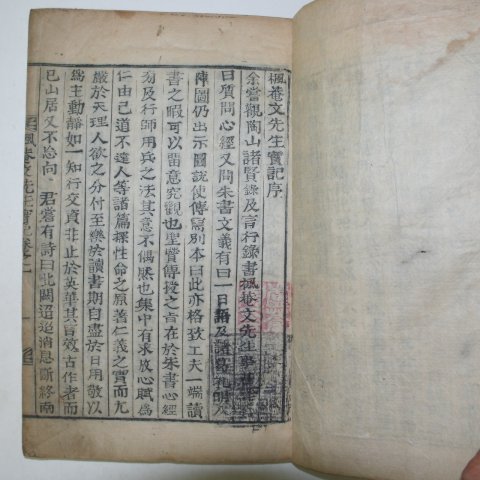 楓菴文先生實記序
余嘗觀陶山諸賢錄及言行錄書楓菴文先生事
曰質問心經又問朱書文義有曰一日語及諸葛孔明八
陣圖仍出示圖說使傳寫別本曰此亦格致工夫一端讀
書之暇可以留意究觀也聖賢傳授之旨在於朱書心經
多及行師用兵之法其意不偶然也集中有求放心賦爲
仁由己道不遠人等諸篇探性命之原著仁義之實而尤
嚴於天理人欲之分付至樂於讀書期自盡於日用敬以
爲主動靜如一知行交資非止於英華其旨效古作者而
已山居又不忘向 君嘗有詩曰北闕迢迢消息斷終南
楓菴文先生實記卷之一